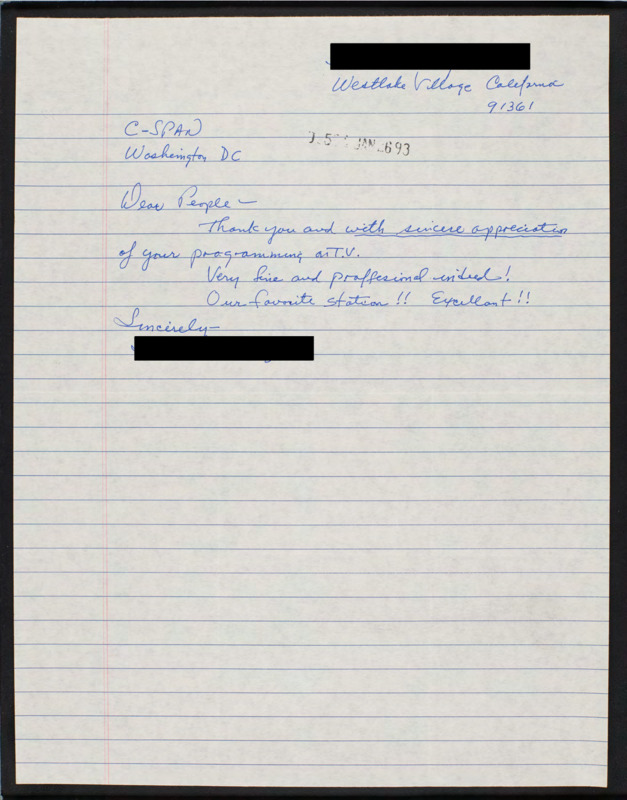 Westlake Village California
91361
C-SPAN
Washington DC
JAN 693
Dear People —
Thank you and with sincere appreciation
of your programming on T.V.
Very fine and proffesional indeed!
Our favorite station!! Excellant!!
Sincerely —